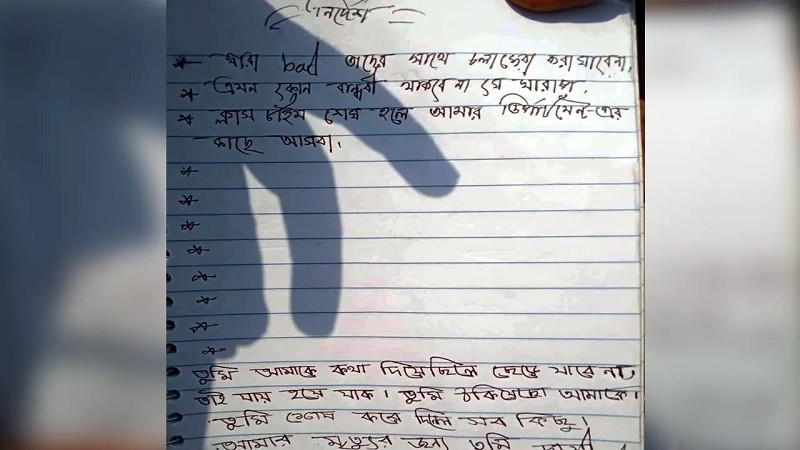 নির্দেশ
* যারা bad তাদের সাথে চলাফেরা করা যাবেনা,
* এমন কোন বান্ধবী থাকবে না যে খারাপ,
* ক্লাস টাইম শেষ হলে আমার ডিপার্টমেন্ট-এর
কাছে আসবা,
*
*
*
*
*
*
*
*
তুমি আমাকে কথা দিয়েছিলে ছেড়ে যাবে না,
তাই যায় হয়ে যাক। তুমি ঠকিয়েছো আমাকে।
তুমি শেষ করে দিলে সব কিছু।
আমার মৃত্যুর জন্য তুমি দায়ী